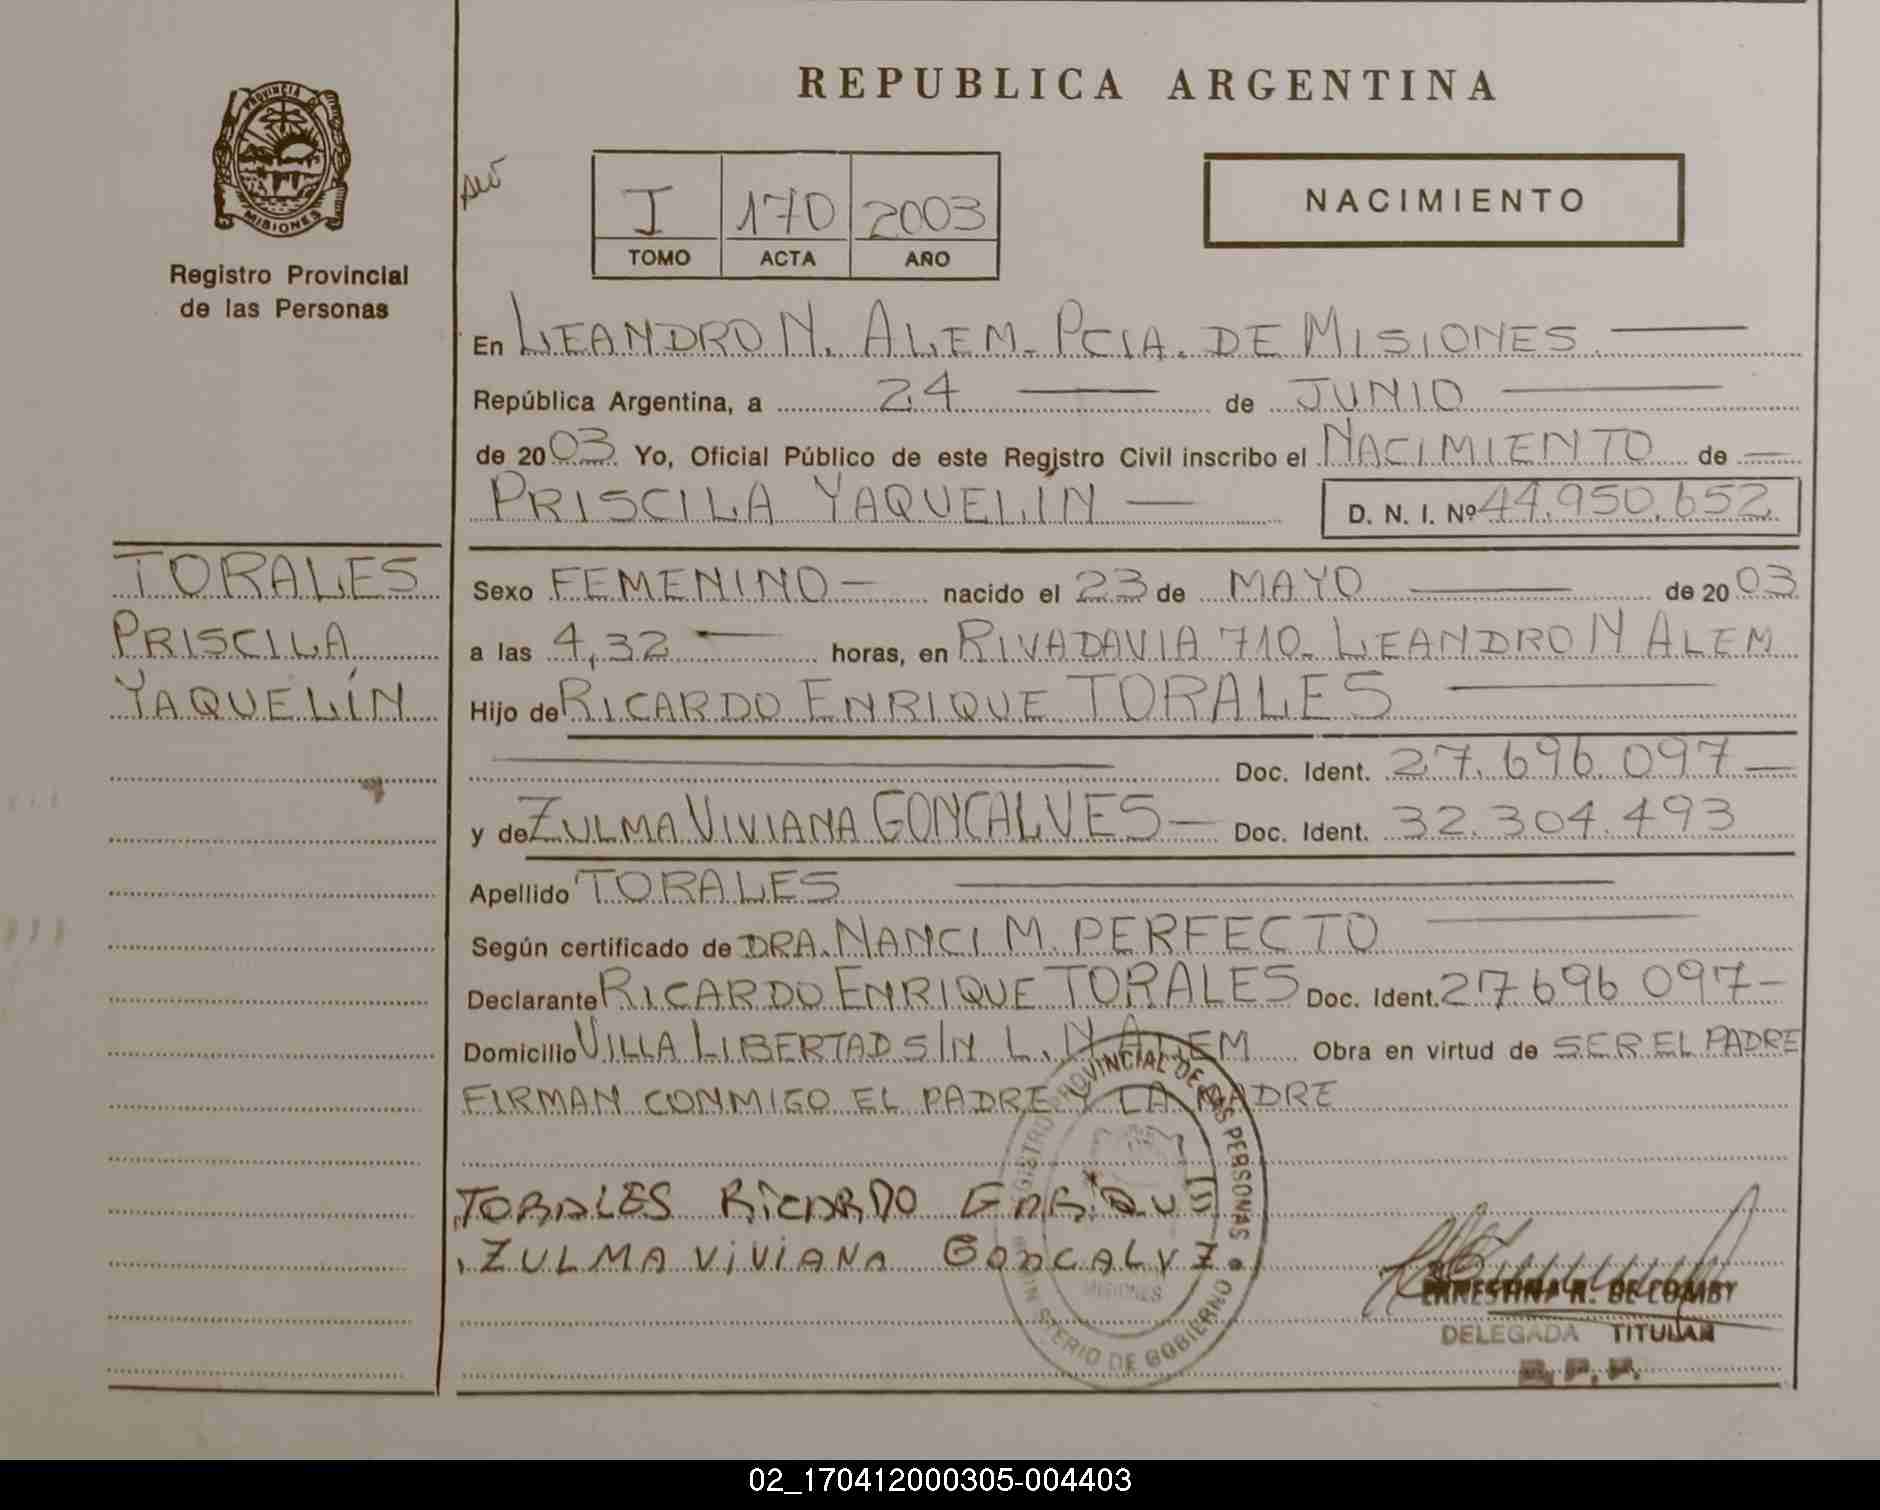 REPUBLICA ARGENTINA
PROVINCIA DE
MISIONES
Registro Provincial
de las Personas
I 170 2003
TOMO ACTA AÑO
NACIMIENTO
En LEANDRO N. ALEM - PCIA. DE MISIONES
República Argentina, a 24 de JUNIO
de 2003 Yo, Oficial Público de este Registro Civil inscribo el NACIMIENTO de
PRISCILA YAQUELIN D. N. I. Nº 44.950.652
TORALES
PRISCILA
YAQUELÍN
Sexo FEMENINO nacido el 23 de MAYO de 2003
a las 4,32 horas, en RIVADAVIA 710 - LEANDRO N ALEM
Hijo de RICARDO ENRIQUE TORALES
Doc. Ident. 27.696.097
y de ZULMA VIVIANA GONCALVES Doc. Ident. 32.304.493
Apellido TORALES
Según certificado de DRA. NANCI M. PERFECTO
Declarante RICARDO ENRIQUE TORALES Doc. Ident. 27 696 097
Domicilio VILLA LIBERTAD S/N L. N ALEM Obra en virtud de SER EL PADRE
FIRMAN CONMIGO EL PADRE Y LA MADRE
TORALES RiCARDO ENRiQUE
ZULMA ViViANA GONCALVZ
REGISTRO PROVINCIAL DE LAS PERSONAS
MINISTERIO DE GOBIERNO
MISIONES
ERNESTINA R. DE COMBY
DELEGADA TITULAR
R. P. P.
02_170412000305-004403